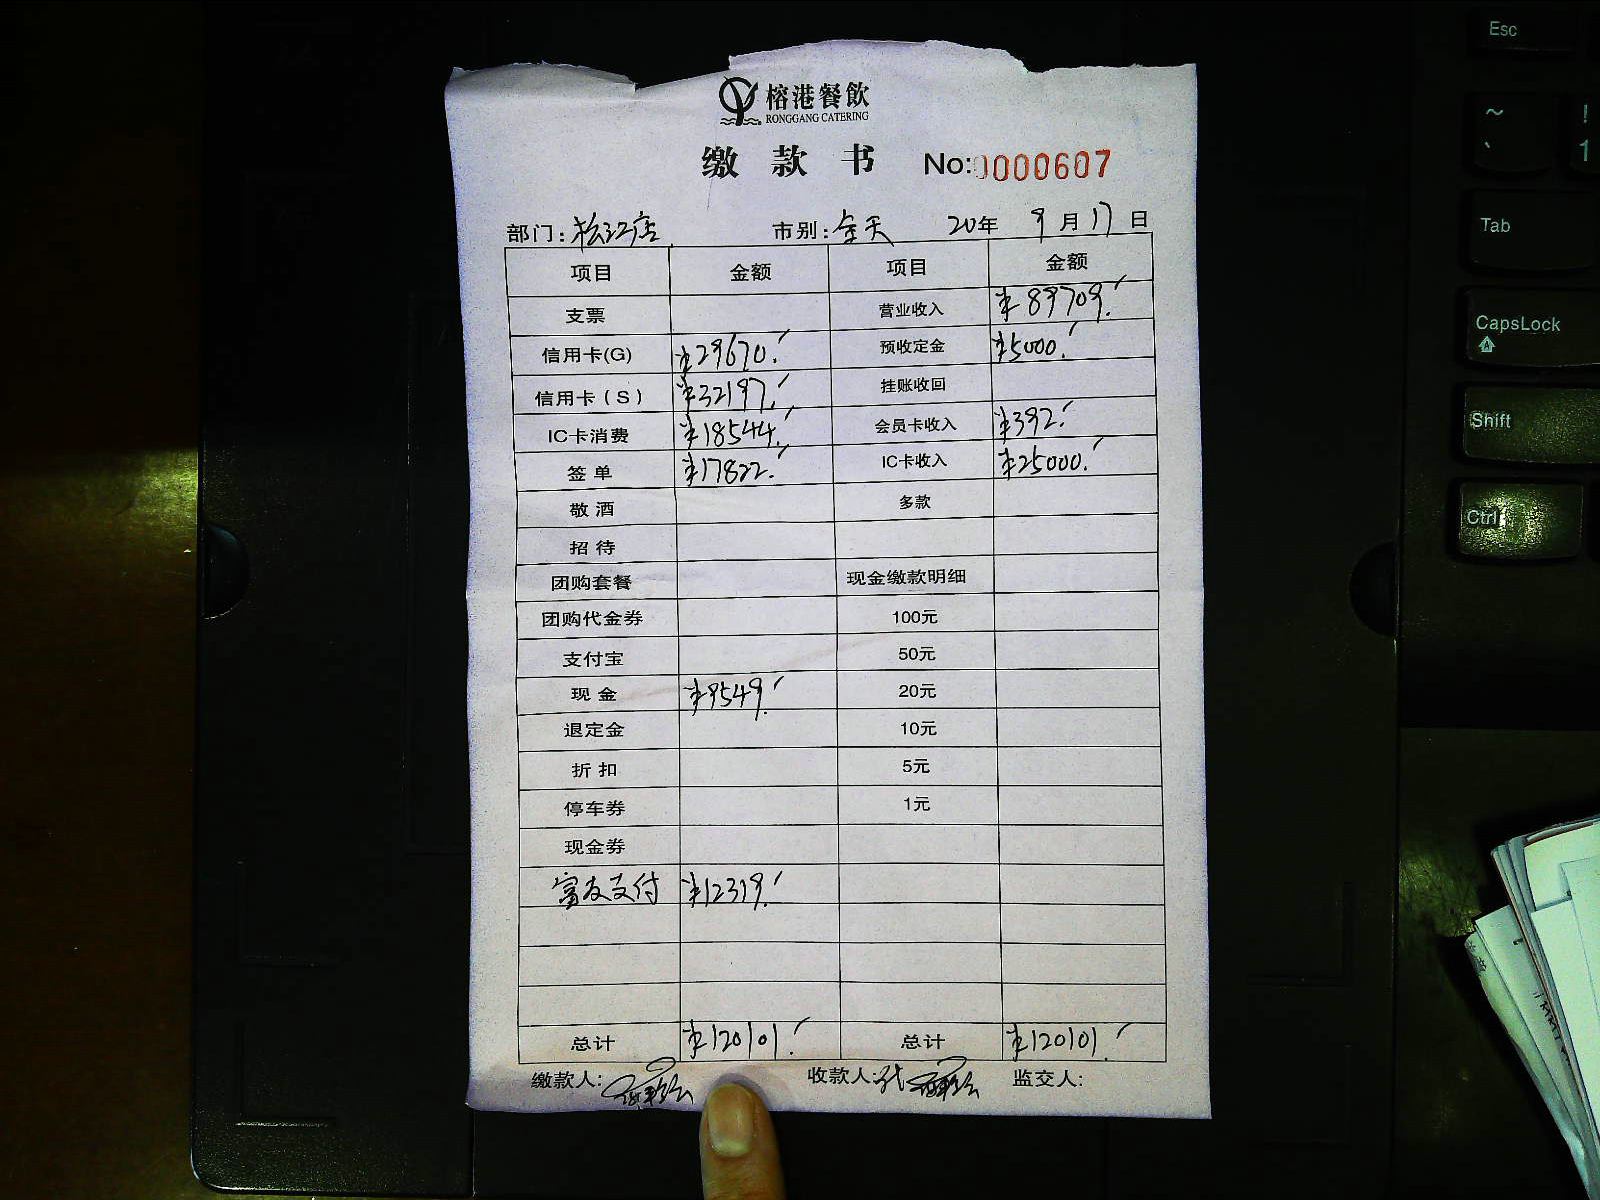 榕港餐飲
RONGGANG CATERING
缴款书 No:0000607
部门:松江店 市别:全天 20年 9月17日
项目 金额 项目 金额
支票 营业收入 ¥89709.
信用卡(G) ¥29670. 预收定金 ¥5000.
信用卡(S) ¥32197. 挂账收回
IC卡消费 ¥18544. 会员卡收入 ¥392.
签单 ¥17822. IC卡收入 ¥25000.
敬酒 多款
招待
团购套餐 现金缴款明细
团购代金券 100元
支付宝 50元
现金 ¥9549. 20元
退定金 10元
折扣 5元
停车券 1元
现金券
富友支付 ¥12319.
总计 ¥120101. 总计 ¥120101.
缴款人: 收款人:代 监交人:
Esc
~ !
` 1
Tab
CapsLock
Shift
Ctrl